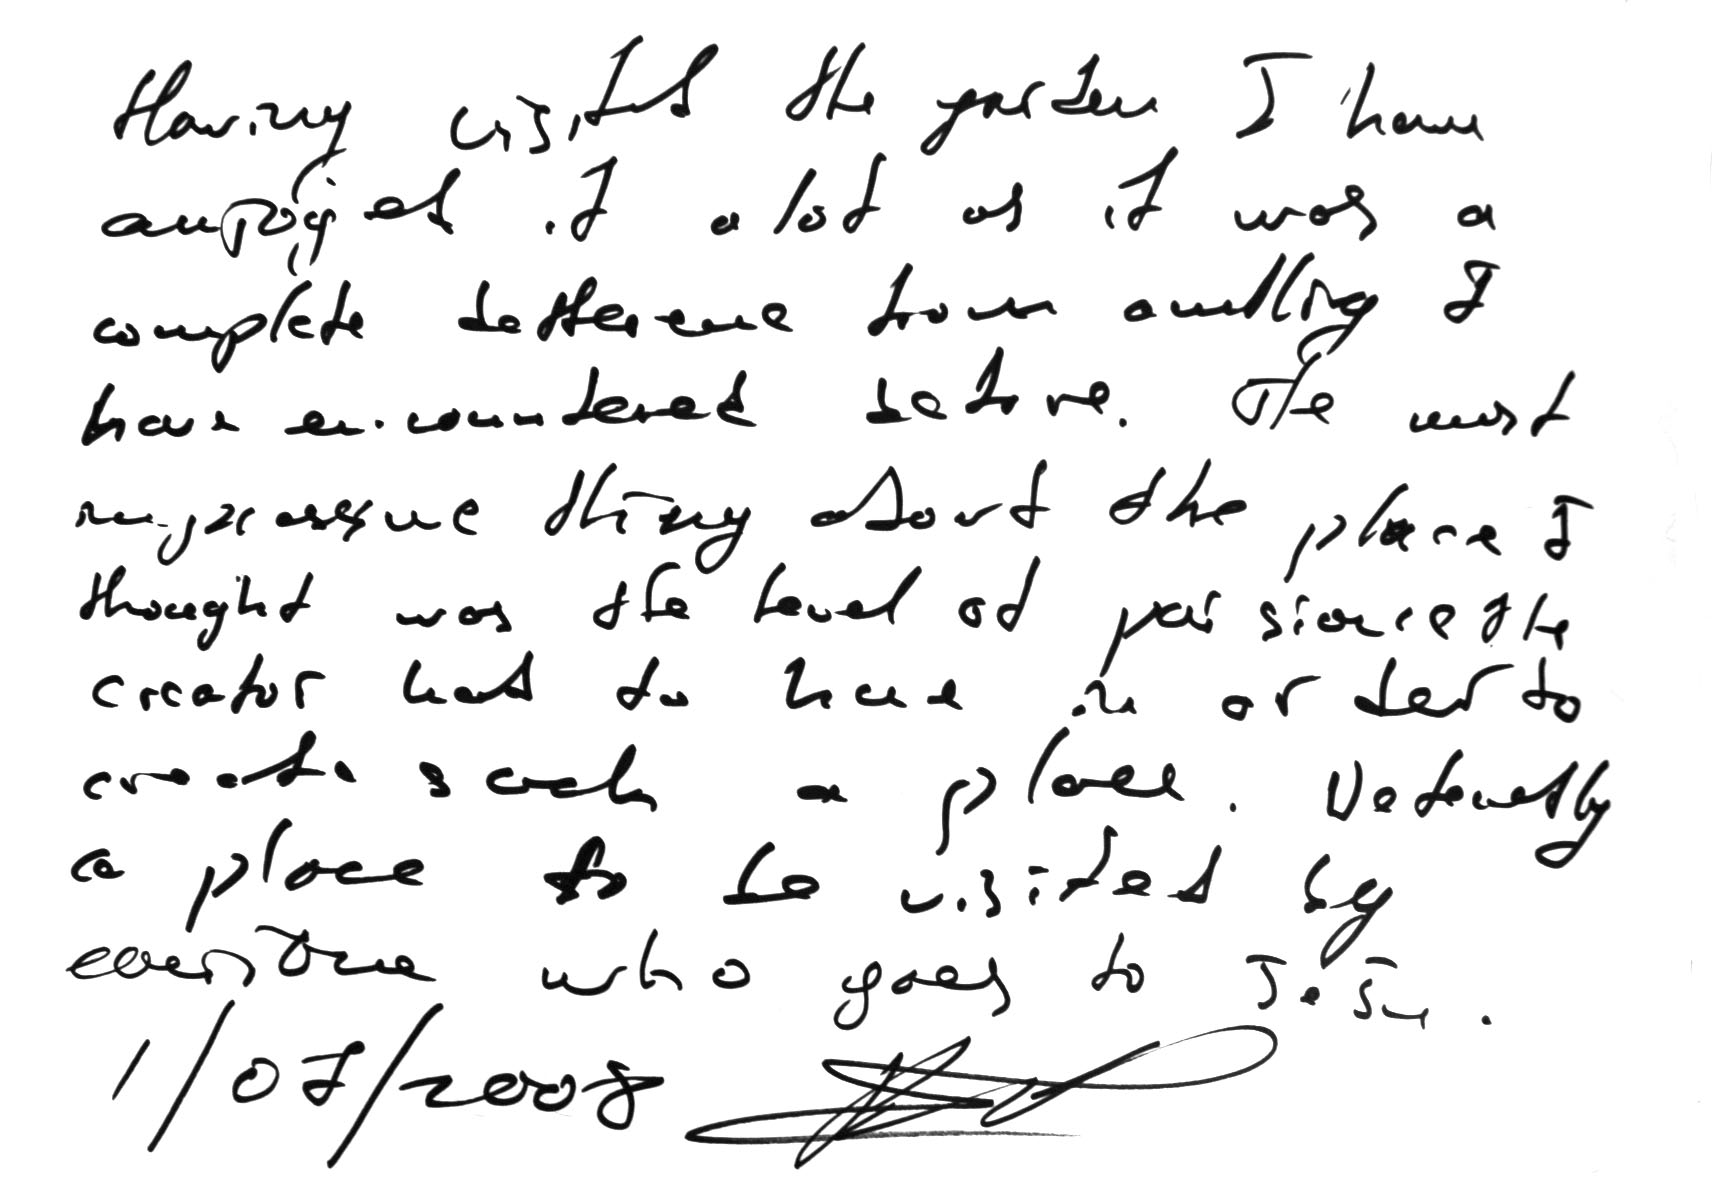 Having visited the garden I have
enjoyed it a lot as it was a
complete difference from anything I
have encountered before. The most
impressive thing about the place I
thought was the level of passionce the
creator had to have in order to
create such a place. Defenetly
a place to be visited by
everyone who goes to
1/07/2008